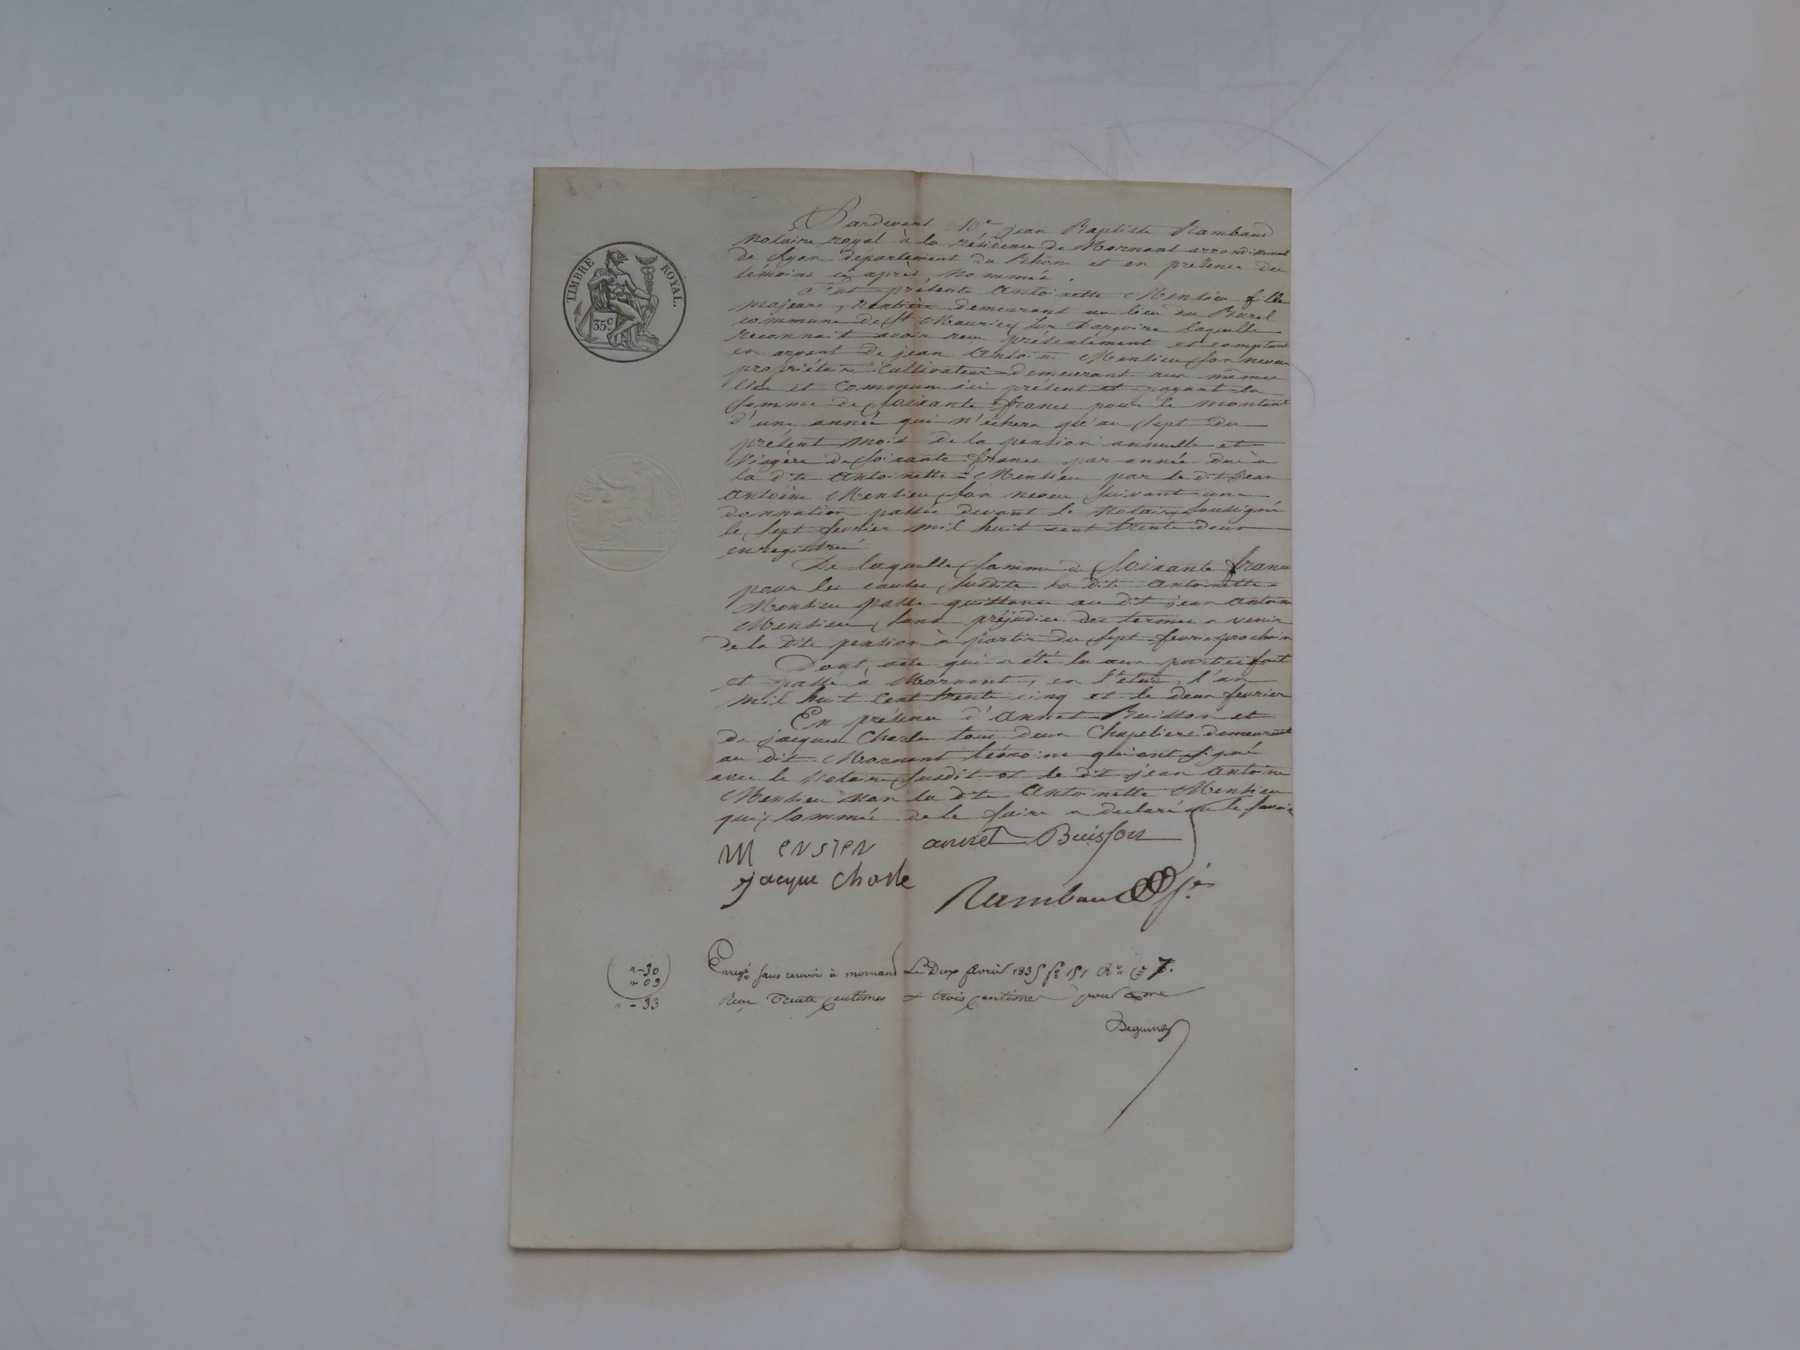 TIMBRE ROYAL.
35c
Pardevant Me jean Baptiste Rambaud
notaire royal à la résidence de Mornant arrondissement
de Lyon département du Rhône et en présence des
témoins ci après nommés,
Fut présente Antoinette Mensieu fille
majeure, rentière demeurant au lieu du Burel
commune de St Maurice sur Dargoire laquelle
reconnait avoir reçu présentement et comptant
en argent de jean Antoine Mensieu son neveu
propriétaire cultivateur demeurant aux mêmes
lieu et commune ici présent et payant la
somme de soixante francs pour le montant
d'une année qui n'échera qu'au sept du
présent mois de la pension annuelle et
viagère de soixante francs par année due à
la dite Antoinette Mensieu par le dit jean
Antoine Mensieu son neveu suivant une
donnation passée devant le notaire soussigné
le sept fevrier mil huit cent trente deux
enregistrée
De laquelle somme de soixante francs
pour les causes susdites la dite Antoinette
Mensieu passe quittance au dit jean Antoine
Mensieu sans préjudice des termes a venir
de la dite pension à partir du sept fevrier prochain
Dont acte qui a été lu aux parties fait
et passé à Mornant, en l'etude, l'an
mil huit cent trente cinq et le deux fevrier
En présence d'Annet Buisson et
de jacques Charle tous deux Chapeliers demeurant
au dit Mornant témoins qui ont signé
avec le Notaire susdit et le dit jean Antoine
Mensieu non la dite Antoinette Mensieu
qui sommée de le faire a declaré ne le savoir
Mensieu annet Buisson
jacque charle
Rambaud
"-30
"-03
"-33
Enregé sans renvois à mornant Le Deux fevrier 1835 fo 151 Ro Ce 7.
Reçu Trente centimes et trois centimes pour